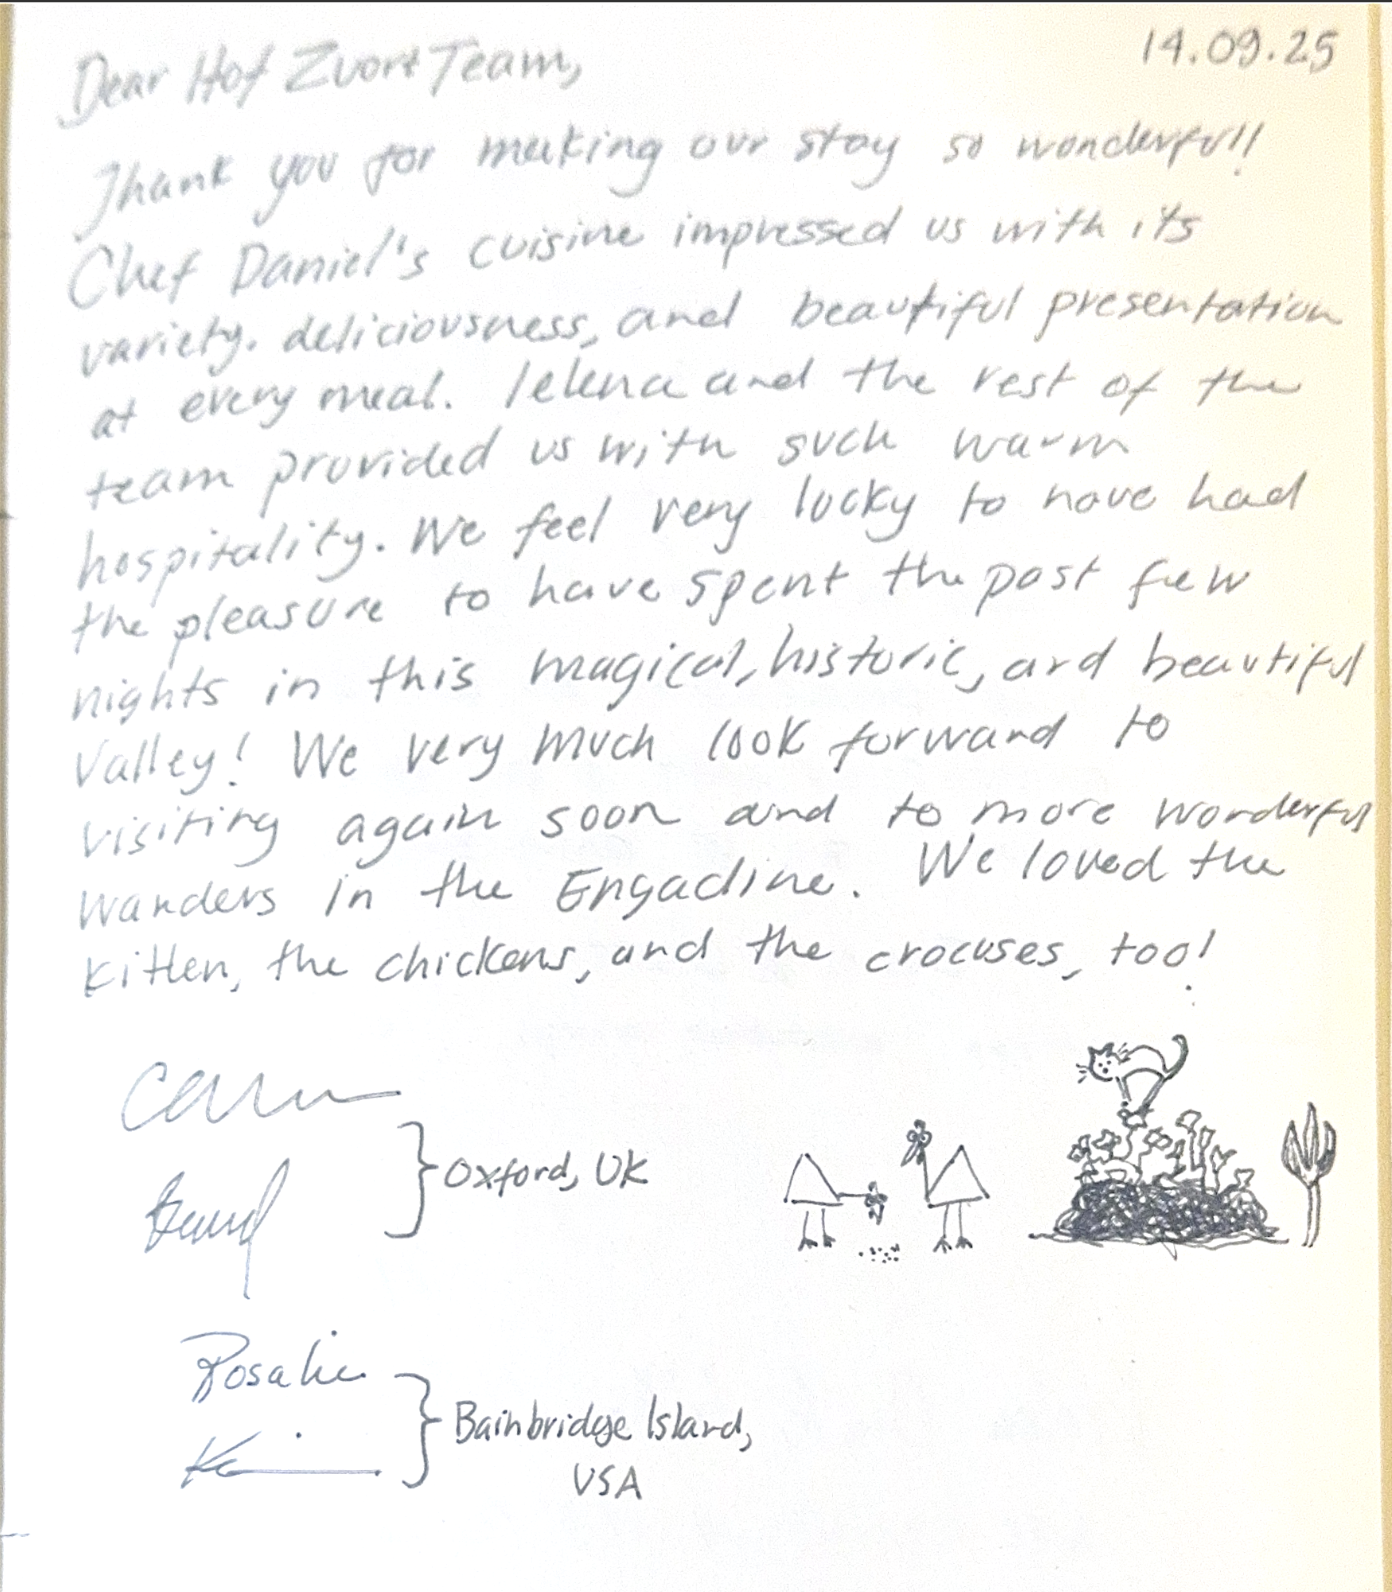 14.09.25
Dear Hof Zuort Team,
Thank you for making our stay so wonderful!
Chef Daniel's cuisine impressed us with its
variety, deliciousness, and beautiful presentation
at every meal. Jelena and the rest of the
team provided us with such warm
hospitality. We feel very lucky to have had
the pleasure to have spent the past few
nights in this magical, historic, and beautiful
Valley! We very much look forward to
visiting again soon and to more wonderful
wanders in the Engadine. We loved the
kitten, the chickens, and the crocuses, too!
Oxford, UK
Rosalie
Bainbridge Island,
USA